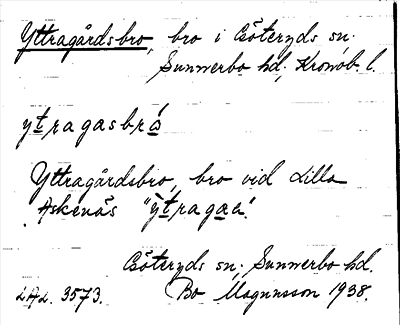 Yttragårdsbro, bro i Göteryds sn.
Sunnerbo hd, Kronob. l.
ytragasbrå
Yttragårdsbro, bro vid Lilla
Askenäs "ỳtragaá".
Göteryds sn. Sunnerbo hd.
LAL. 3573. Bo Magnusson 1938.